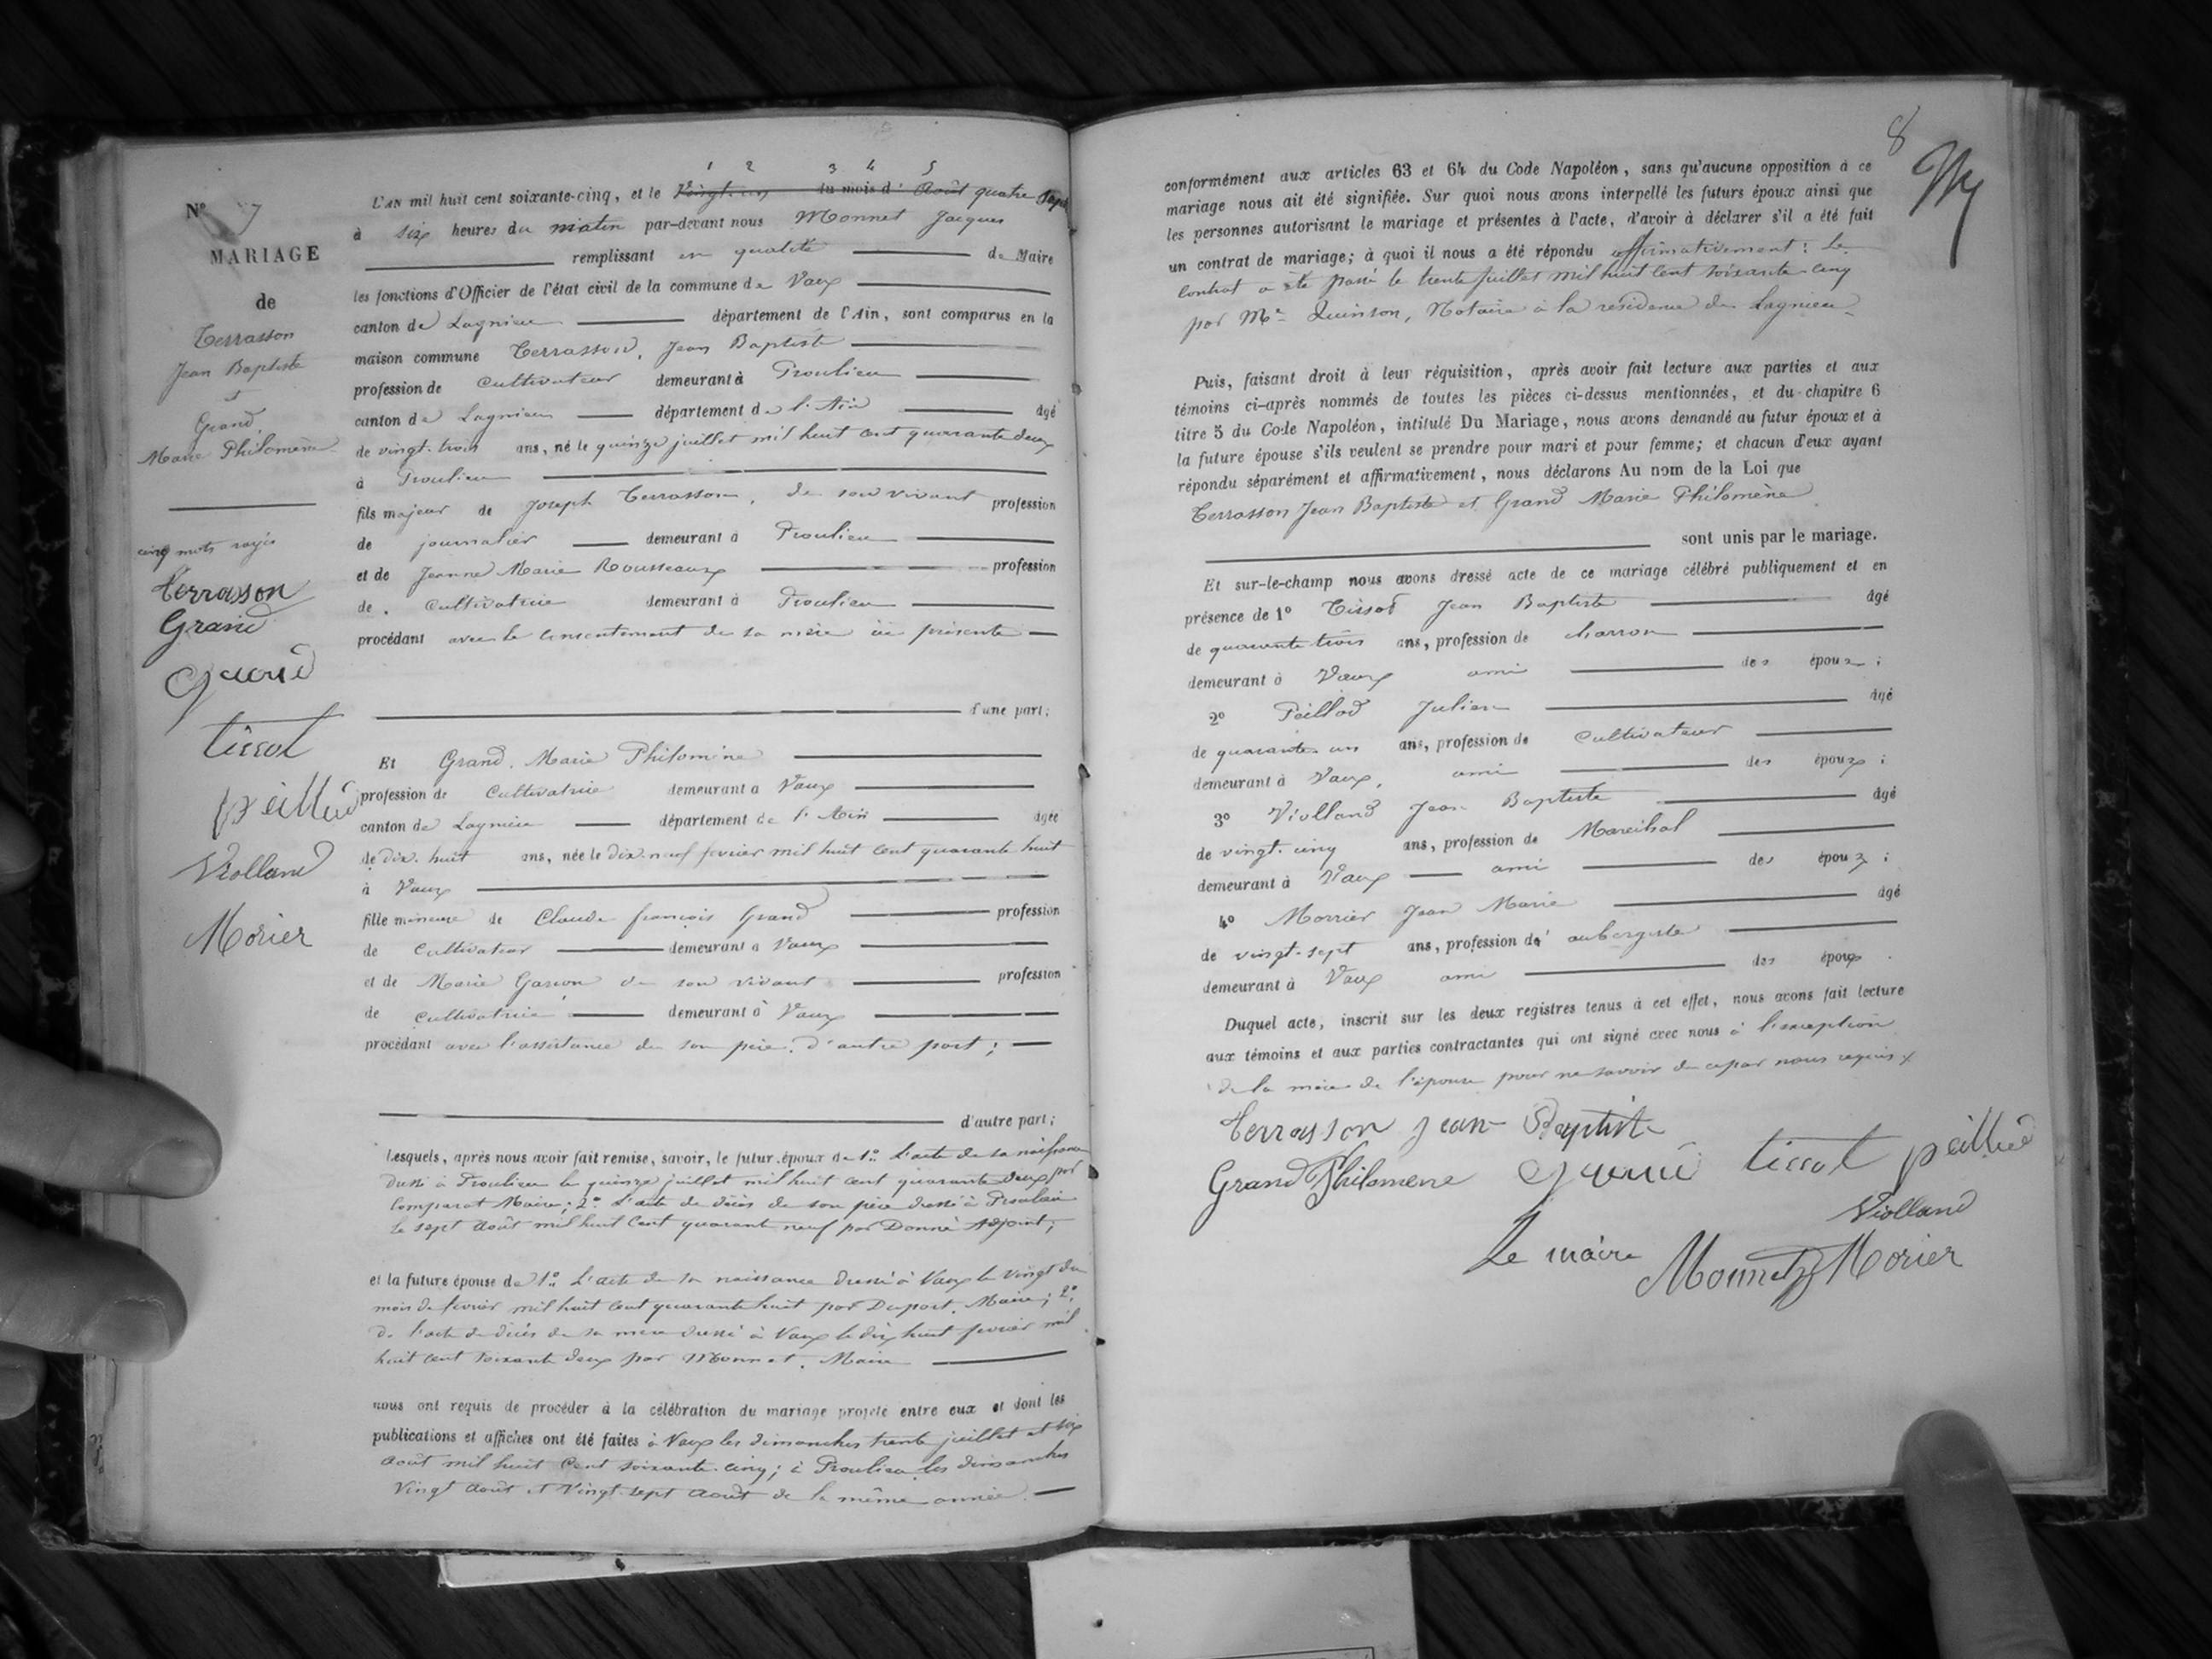 N° 7
MARIAGE
de
Terrasson
Jean Baptiste
et
Grand,
Marie Philomène
cinq mots rayés
terrasson
Grand
tissot
Violland
Morier
1 2 3 4 5
L'AN mil huit cent soixante-cinq, et le vingt cinq du mois d'Août quatre sept
à six heures du matin par-devant nous Monnet Jacques
remplissant en qualité de Maire
les fonctions d'Officier de l'état civil de la commune de Vaux
canton de Lagnieu département de l'Ain, sont comparus en la
maison commune Terrasson, Jean Baptiste
profession de Cultivateur demeurant à Proulieu
canton de Lagnieu département de l'Ain âgé
de vingt-trois ans, né le quinze juillet mil huit cent quarante deux
à Proulieu
fils majeur de Joseph Terrasson, de son vivant profession
de journalier demeurant à Proulieu
et de Jeanne Marie Rousseaux profession
de cultivatrice demeurant à Proulieu
procédant avec le consentement de sa mère ici présente
d'une part;
Et Grand, Marie Philomène
profession de Cultivatrice demeurant à Vaux
canton de Lagnieu département de l'Ain âgée
de dix-huit ans, née le dix-neuf fevrier mil huit cent quarante huit
à Vaux
fille mineure de Claude françois Grand profession
de Cultivateur demeurant à Vaux
et de Marie de son vivant profession
de Cultivatrice demeurant à Vaux
procédant avec l'assistance de son père, d'autre part;
d'autre part;
Lesquels, après nous avoir fait remise, savoir, le futur époux de 1° L'acte de sa naissance
dressé à Proulieu le quinze juillet mil huit cent quarante deux par
Comparat Maire; 2° L'acte de décès de son père dressé à Proulieu
le sept Août mil huit Cent quarante neuf par Donné Adjoint;
et la future épouse de 1° L'acte de sa naissance dressé à Vaux le vingt du
mois de fevrier mil huit cent quarante huit par Duport, Maire; 2°
de l'acte de décès de sa mère dressé à Vaux le dix huit fevrier mil
huit cent soixante deux par Monnet, Maire
nous ont requis de procéder à la célébration du mariage projeté entre eux et dont les
publications et affiches ont été faites à Vaux les dimanches trente juillet et six
Août mil huit Cent soixante-cinq; à Proulieu les dimanches
Vingt Août et Vingt-sept Août de la même année.
8
conformément aux articles 63 et 64 du Code Napoléon, sans qu'aucune opposition à ce
mariage nous ait été signifiée. Sur quoi nous avons interpellé les futurs époux ainsi que
les personnes autorisant le mariage et présentes à l'acte, d'avoir à déclarer s'il a été fait
un contrat de mariage; à quoi il nous a été répondu affirmativement: Le
Contrat a été passé le trente juillet mil huit Cent soixante-cinq
par Me Quinson, Notaire à la résidence de Lagnieu
Puis, faisant droit à leur réquisition, après avoir fait lecture aux parties et aux
témoins ci-après nommés de toutes les pièces ci-dessus mentionnées, et du chapitre 6
titre 5 du Code Napoléon, intitulé Du Mariage, nous avons demandé au futur époux et à
la future épouse s'ils veulent se prendre pour mari et pour femme; et chacun d'eux ayant
répondu séparément et affirmativement, nous déclarons Au nom de la Loi que
Terrasson Jean Baptiste et Grand Marie Philomène
sont unis par le mariage.
Et sur-le-champ nous avons dressé acte de ce mariage célébré publiquement et en
présence de 1° Tissot Jean Baptiste âgé
de quarante trois ans, profession de charron
demeurant à Vaux ami des époux;
2° Peillod Julien âgé
de quarante-un ans, profession de Cultivateur
demeurant à Vaux, ami des époux;
3° Violland Jean Baptiste âgé
de vingt-cinq ans, profession de Maréchal
demeurant à Vaux ami des époux;
4° Morrier Jean Marie âgé
de vingt-sept ans, profession d'aubergiste
demeurant à Vaux ami des époux.
Duquel acte, inscrit sur les deux registres tenus à cet effet, nous avons fait lecture
aux témoins et aux parties contractantes qui ont signé avec nous à l'exception
de la mère de l'époux pour ne savoir de ce par nous requis
terrasson jean Baptiste
Grand Philomene tissot
Violland
Le maire Monnet Morier